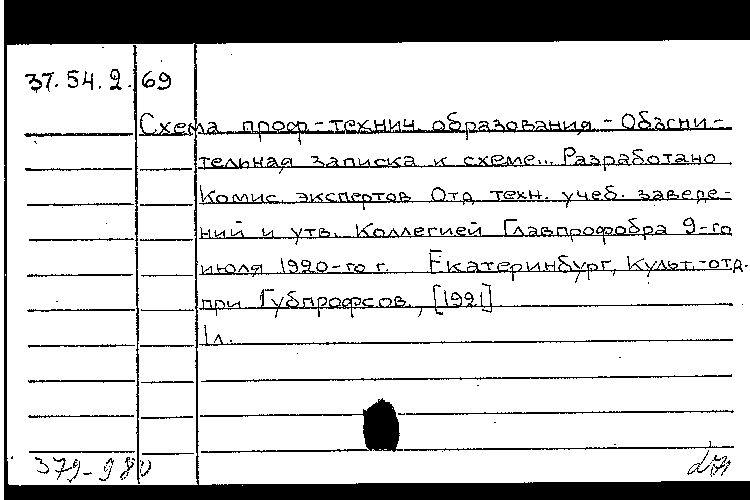 37.54.2. 69
Схема проф-технич. образования.- Объясни-
тельная записка к схеме... Разработано
Комис. экспертов Отд. техн. учеб. заведе-
ний и утв. Коллегией Главпрофобра 9-го
июля 1920-го г. Екатеринбург, Культ.-отд.
при Губпрофсов., [1921]
1л.
379-980